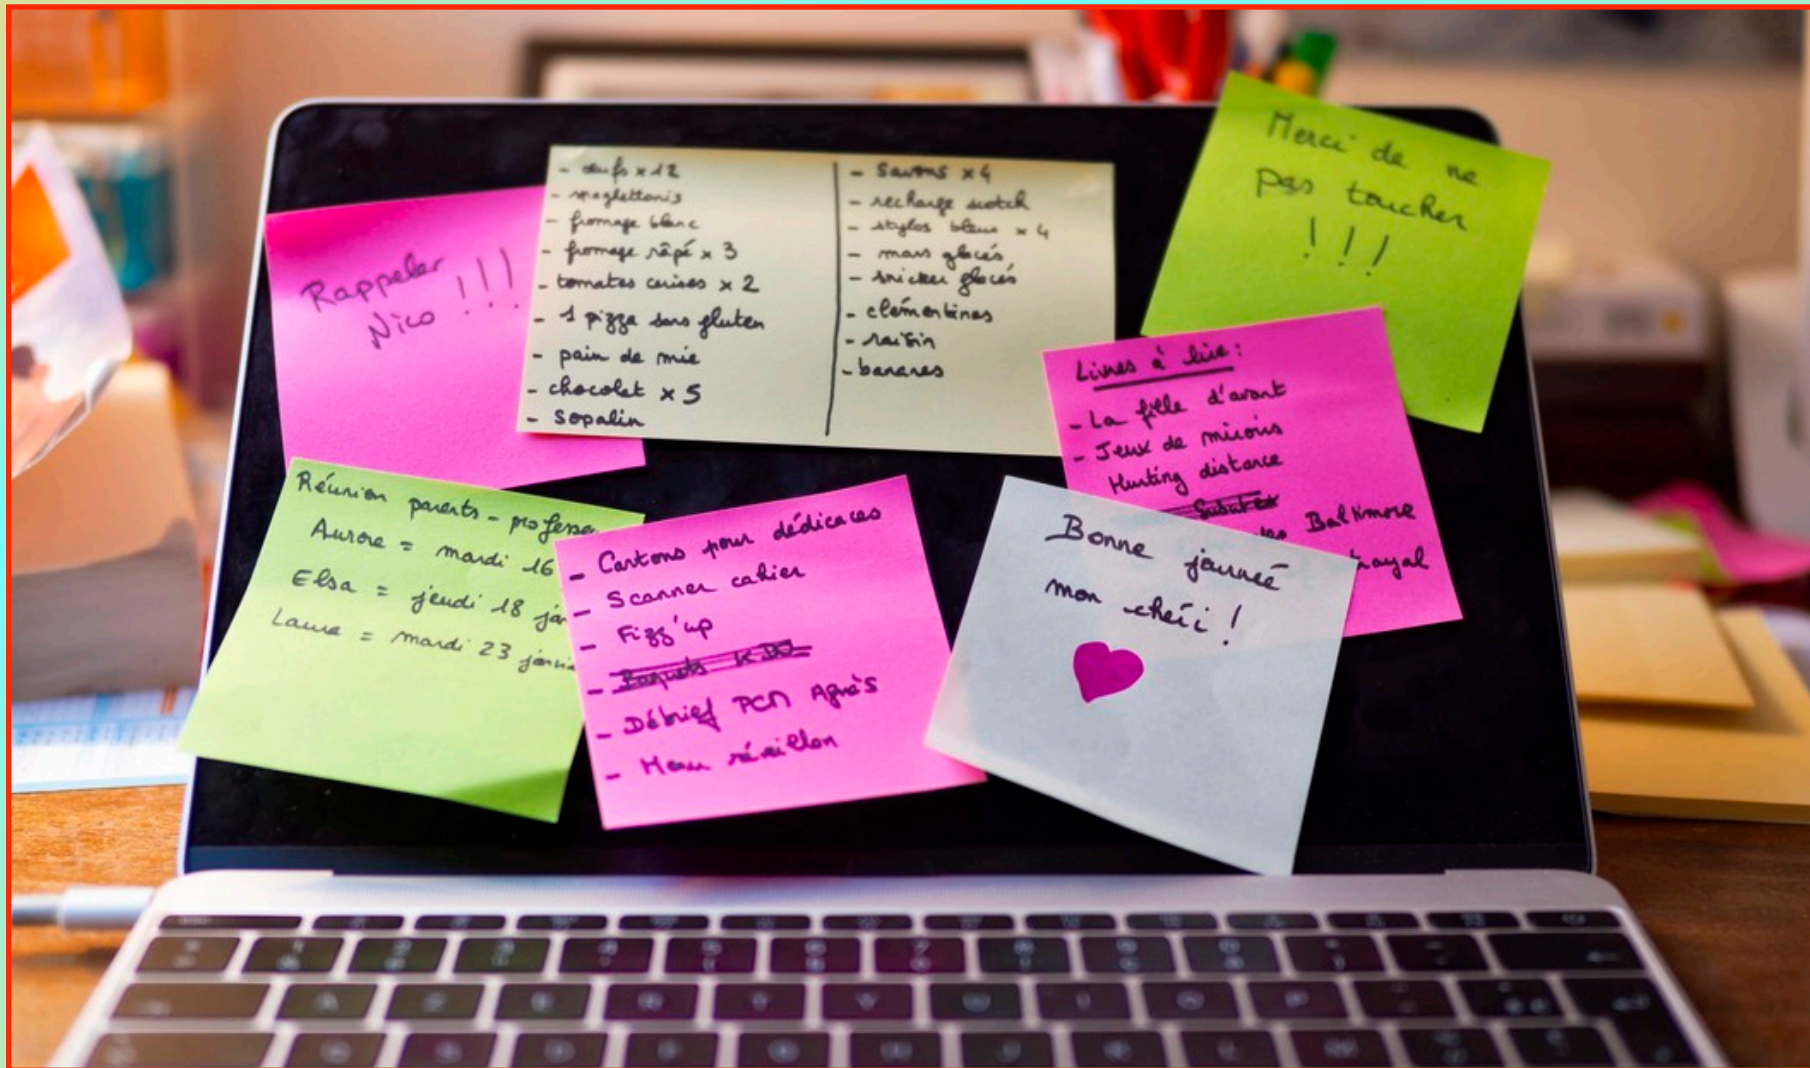 Rappeler
Nico !!!
- œufs x 12
- spaghettonis
- fromage blanc
- fromage râpé x 3
- tomates cerises x 2
- 1 pizza sans gluten
- pain de mie
- chocolat x 5
- sopalin
- savons x 4
- recharge scotch
- stylos bleus x 4
- mars glacés
- snicker glacés
- clémentines
- raisin
- bananes
Merci de ne
pas toucher
!!!
Livres à lire :
- La fille d'avant
- Jeux de miroirs
Hunting distance
Baltimore
Réunion parents - professe
Aurore = mardi 16
Elsa = jeudi 18 jan
Laura = mardi 23 janvie
- Cartons pour dédicaces
- Scanner cahier
- Fizz'up
- Paquets KDO
- Débrief PCM Agnès
- Menu réveillon
Bonne journée
mon chéri !